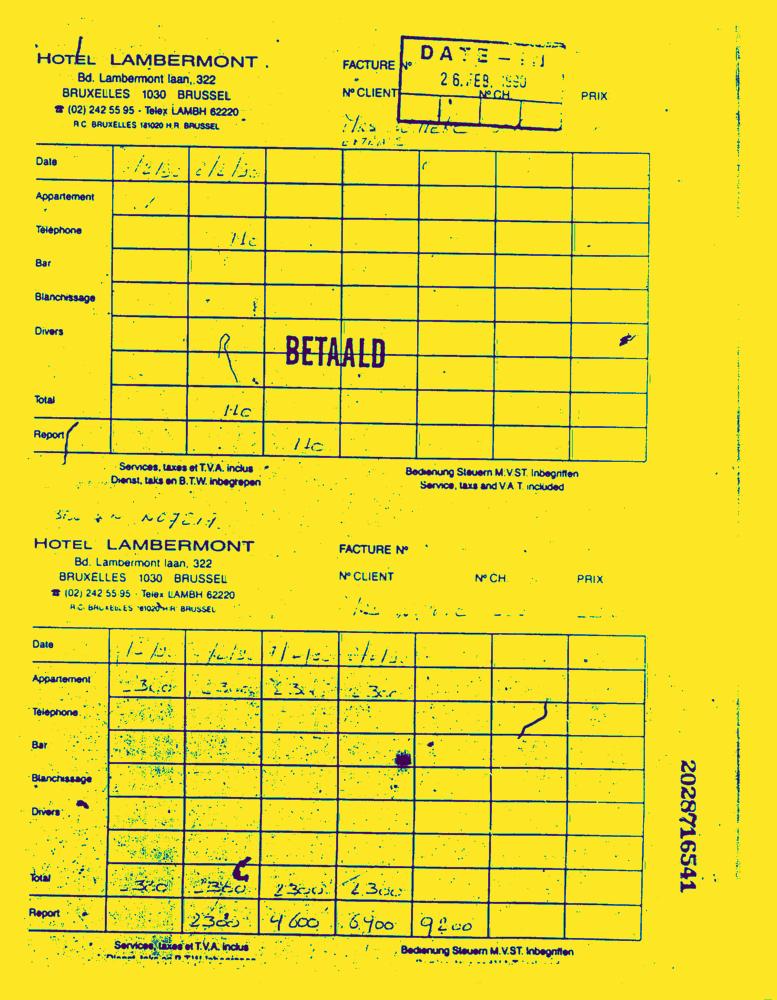 HOTEL LAMBERMONT
Bd. Lambermont laan, 322
BRUXELLES 1030 BRUSSEL
☎ (02) 242 55 95 - Telex LAMBH 62220
R.C. BRUXELLES 181020 H.R. BRUSSEL
FACTURE N°
N° CLIENT
N° CH.
PRIX
DATE -
26. FEB. 1990
Date
Appartement
Téléphone
Bar
Blanchissage
Divers
BETAALD
Total
Report
Services, taxes et T.V.A. inclus
Dienst, taks en B.T.W. inbegrepen
Bedienung Steuern M.V.ST. Inbegriffen
Service, taxs and V.A.T. included
HOTEL LAMBERMONT
Bd. Lambermont laan, 322
BRUXELLES 1030 BRUSSEL
☎ (02) 242 55 95 - Telex LAMBH 62220
R.C. BRUXELLES 181020 H.R. BRUSSEL
FACTURE N°
N° CLIENT
N° CH.
PRIX
Date
Appartement 2300
Téléphone
Bar
Blanchissage
Divers
Total 2300 2300
Report 2300 4600 6900 9200
Services, taxes et T.V.A. inclus
Bedienung Steuern M.V.ST. Inbegriffen
2028716541